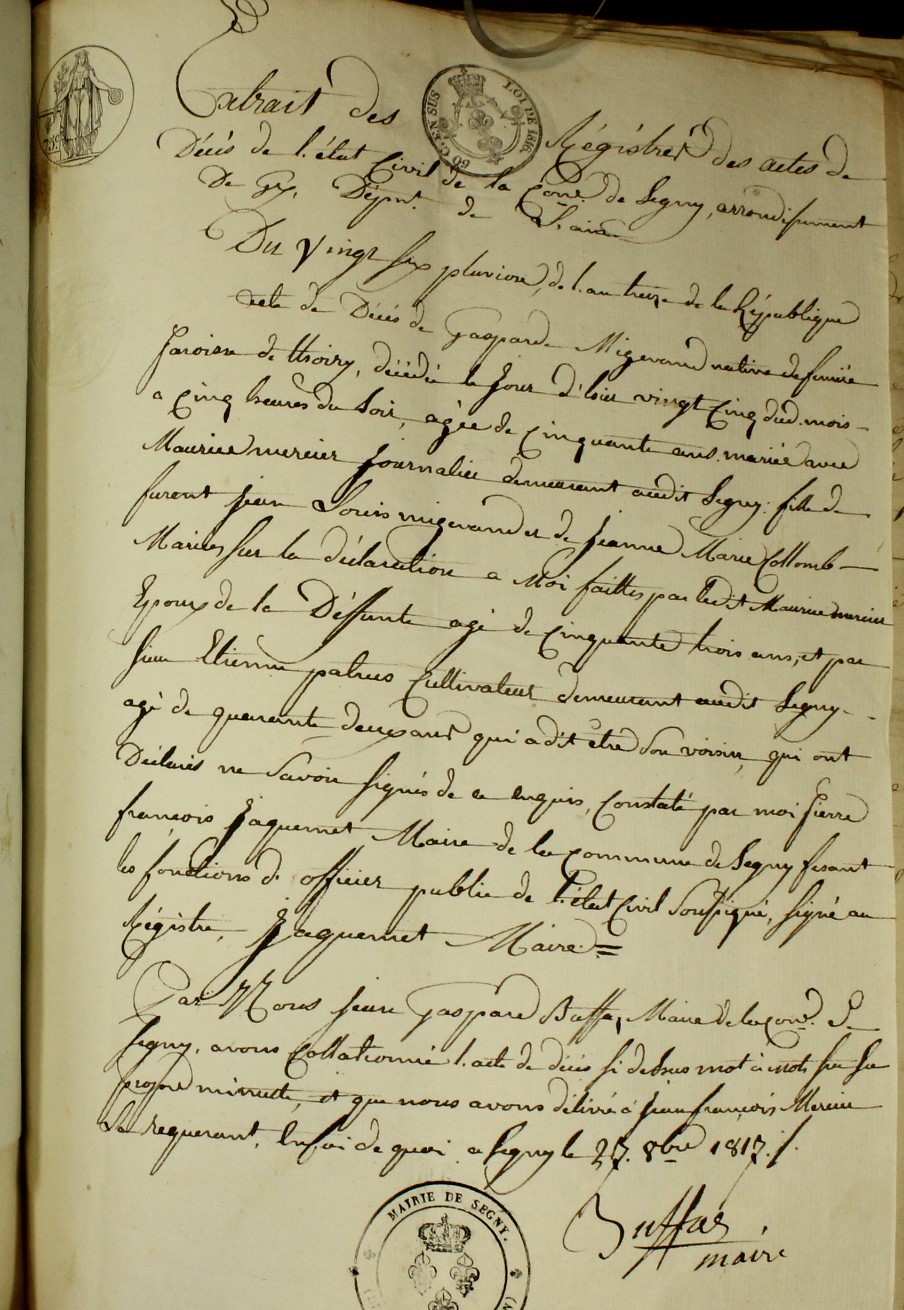 Extrait des Régistres des actes de
Décès de l'état Civil de la Com.e de Segny, arrondissement
De Gex, Dépmt. de L'ain
Du Vingt six pluviose, de l'an treize de la République
acte de Décès de Gasparde Migerand native de
paroisse de thoiry, décédée le Jour d'hier vingt Cinq dud. mois
a Cinq heures du Soir, agée de Cinquante ans. mariée avec
Maurice mercier Journalier demeurant audit Segny: fille de
furent jean Louis migerand et de jeanne Marie Collomb
Mariés Sur la déclaration a Moi faittes par ledit Maurice mercier
Epoux de la Déffunte agé de Cinquante trois ans, et par
Sieur Etienne patrus Cultivateur demeurant audit Segny
agé de quarante deux ans qui a dit être Son voisin, qui ont
Déclarés ne Savoir signés de ce enquis, Constaté par moi pierre
françois Jaquemet Maire de la commune de Segny fesant
les fonctions d. officier public de l'état Civil Soussigné, signé au
Régistre, Jaquemet Maire =
Par Nous jean Gaspard Buffaz, Maire de la Com.e De
Segny, avons Collationné l'acte de décès si dessus mot à mots sur Sa
propre minutte, et que nous avons délivré à jean françois Mercier
Le requerant, En foi de quoi a Segny le 27. 8bre 1817 ./.
Buffaz
maire
60 C. EN SUS
LOI DE 1816
MAIRIE DE SEGNY.